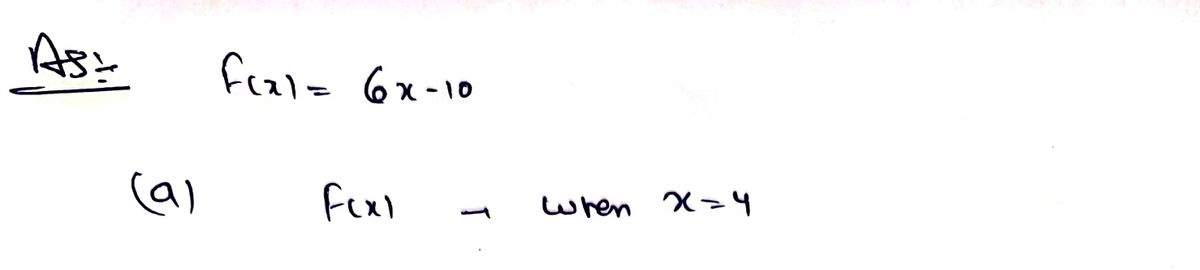 A8:-
f(x) = 6x-10
(a) f(x) → when x=4